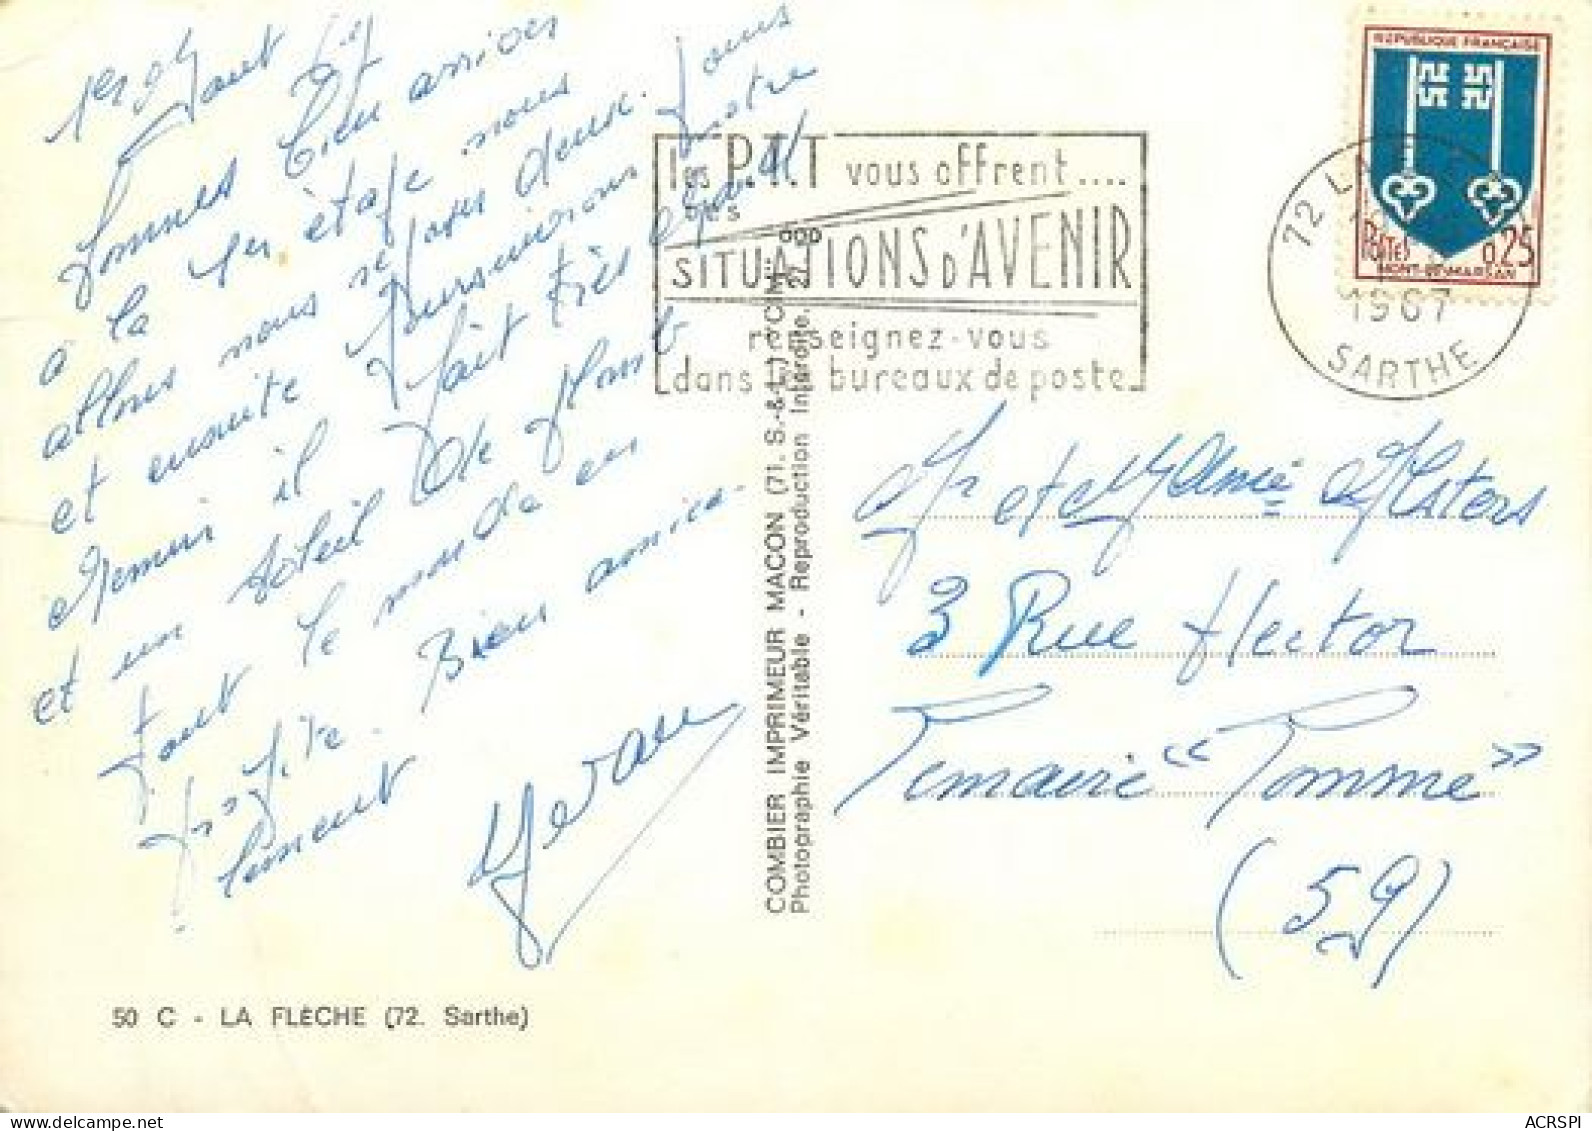 sommes bien arrivés
à la 1er étape nous
allons nous reposer deux jours
et ensuite poursuivrons notre
chemin il fait très chaud
et un soleil de plomb
tout le monde en
profite. Bien amica-
lement
50 C - LA FLÈCHE (72. Sarthe)
COMBIER IMPRIMEUR MACON (71. S.-&-L.) "CIM"
Photographie Véritable - Reproduction Interdite.
les P.T.T vous offrent....
des
SITUATIONS D'AVENIR
renseignez-vous
dans les bureaux de poste
72 LA
1967
SARTHE
REPUBLIQUE FRANÇAISE
POSTES 0,25
MONT-DE-MARSAN
Mr et Mme
3 Rue Hector
"Somme"
(59)
ACRSPI